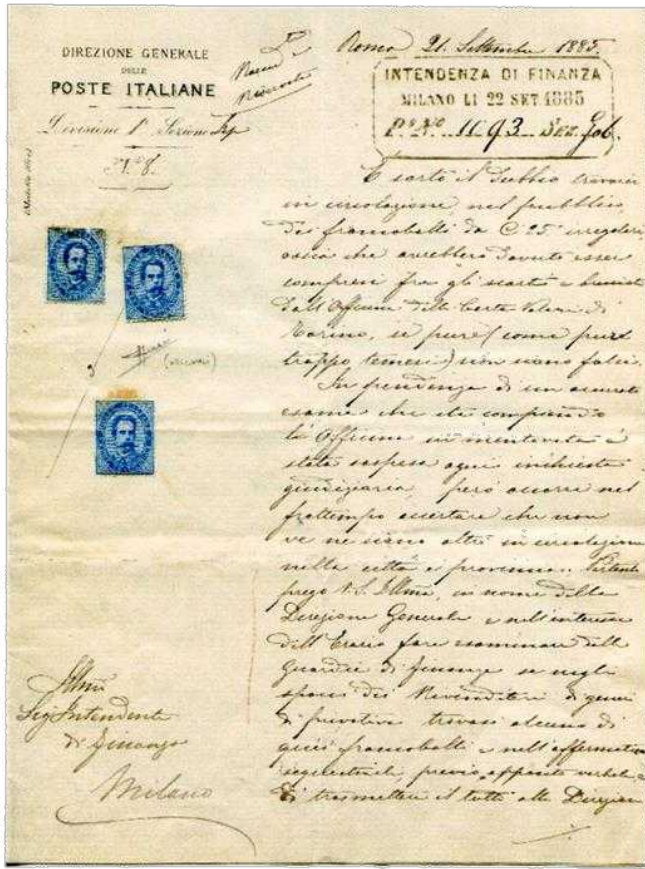 DIREZIONE GENERALE
DELLE
POSTE ITALIANE
Divisione 1ª Sezione
Nº 8.
Roma 21. Settembre 1885.
INTENDENZA DI FINANZA
MILANO LI 22 SET 1885
1193 SEZ. Gab.
È sorto il dubbio trovarsi
in circolazione nel pubblico
dei francobolli da C. 25 irregolari
ossia che avrebbero dovuto esser
compresi fra gli scarti e bruciati
dall'Officina delle Carte Valori di
Torino, se pure (come pur
troppo temesi) non siano falsi.
In pendenza di un accurato
esame che sta compiendo
la Officina è
stata sospesa ogni inchiesta
giudiziaria, però occorre nel
frattempo accertare che non
ve ne siano altri in circolazione
nella città e provincia. Pertanto
prego V. S. Illma, in nome della
Direzione Generale e nell'interesse
dell'Erario fare esaminare dalle
Guardie di finanza se negli
spacci dei Rivenditori di generi
di privativa trovasi alcuno di
quei francobolli e nell'affermativa
sequestrarli, previo apposito verbale, e
di trasmettere il tutto alla Direzione
Illmo
Sig Intendente
di Finanza
Milano